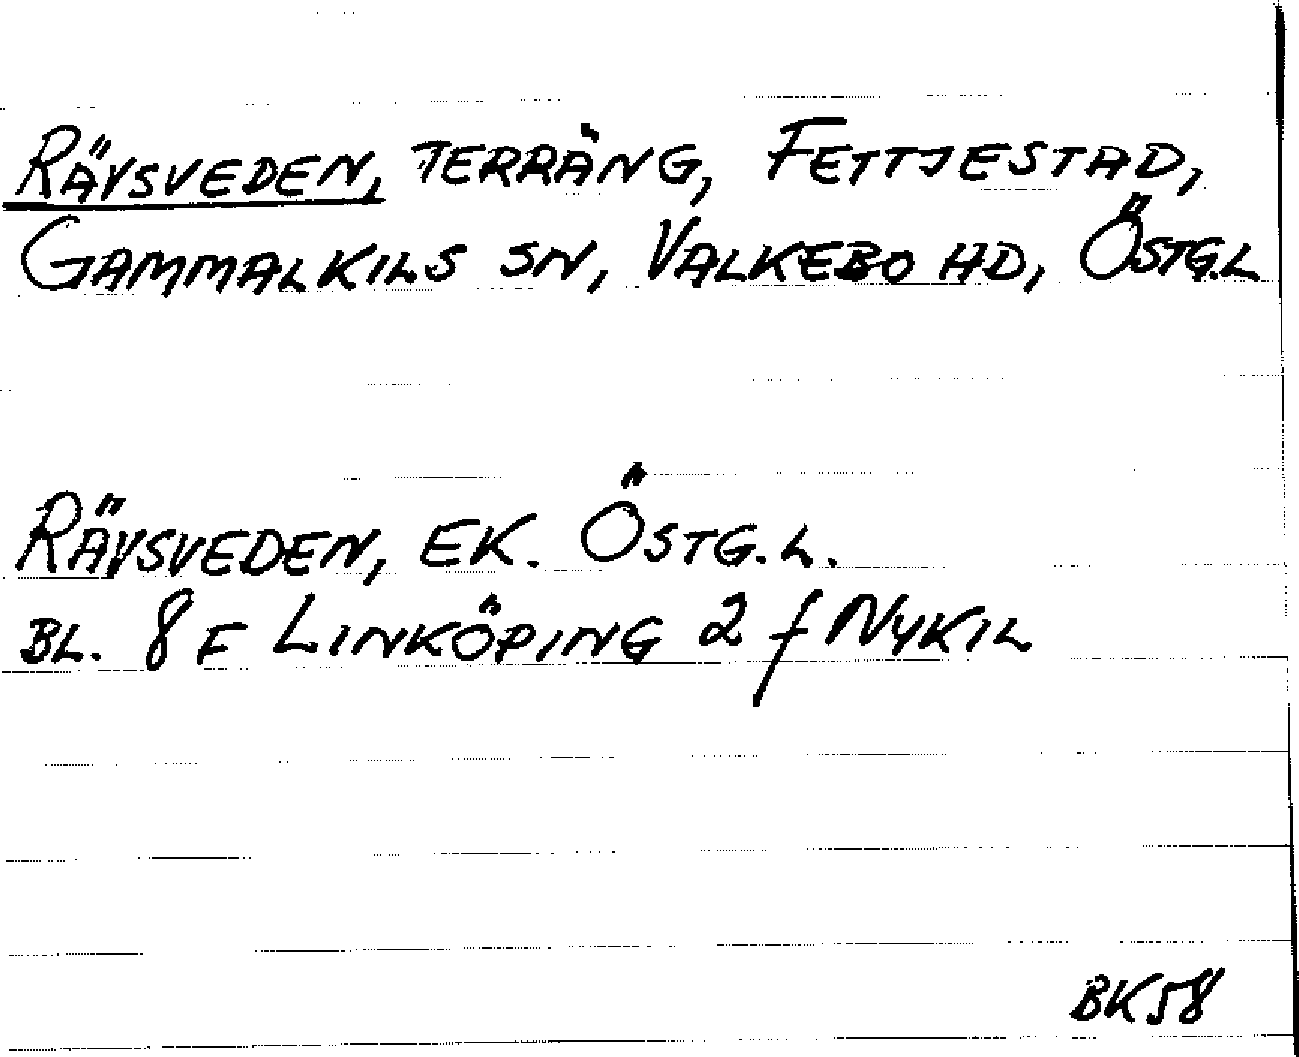 RÄVSVEDEN, TERRÄNG, FETTJESTAD,
GAMMALKILS SN, VALKEBO HD, ÖSTG.L
RÄVSVEDEN, EK. ÖSTG.L.
BL. 8F LINKÖPING 2 f NYKIL
BK58